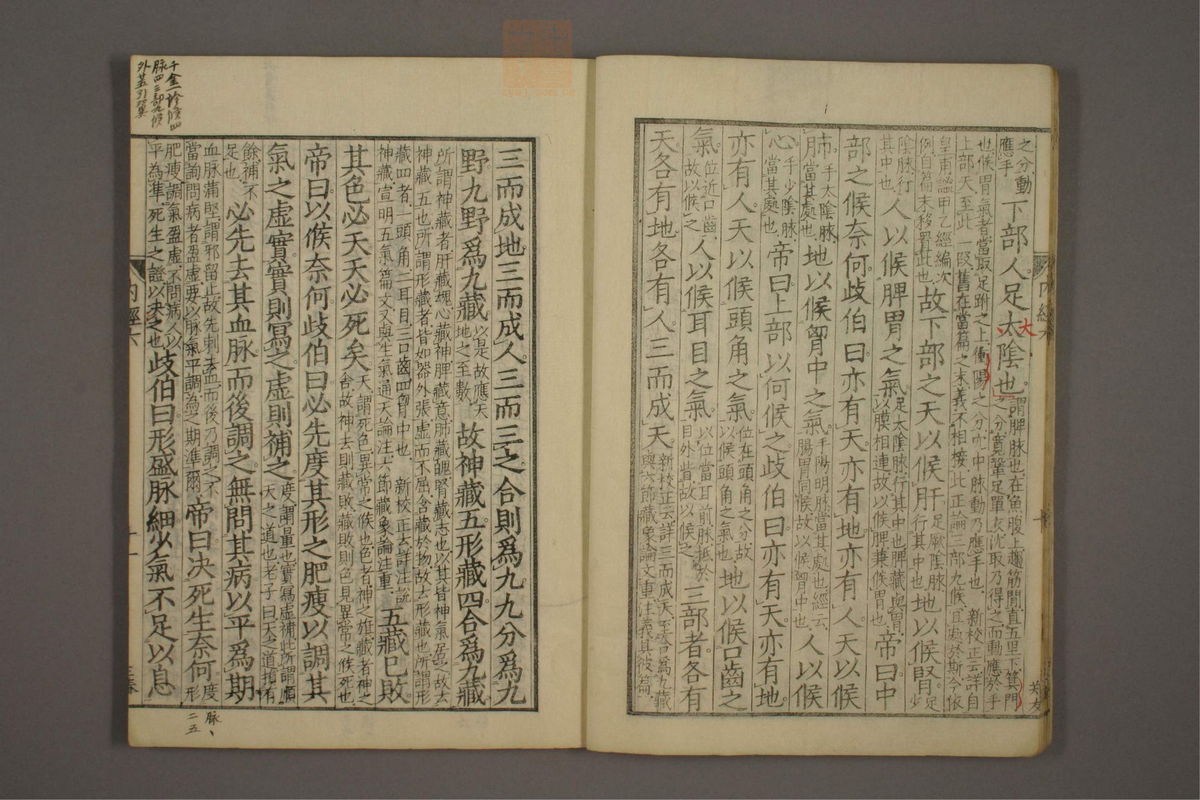 之分動
應手
下部人足太陰也
謂脾脉也在魚腹上越筋間直五里下箕門
之分寬鞏足單衣沈取乃得之而動應於手
也候胃氣者當取足跗之上衝陽之分穴中脉動乃應手也 新校正云詳自
上部天至此一段舊在當篇之末義不相接此正論三部九候宜處於斯今依
皇甫謐甲乙經編次
例自篇末移置此也
故下部之天以候肝
足厥陰脉
行其中也
地以候腎
足少
陰脉行
其中也
人以候脾胃之氣
足太陰脉行其中也脾藏與胃
以膜相連故以候脾兼候胃也
帝曰中
部之候奈何歧伯曰亦有天亦有地亦有人天以候
肺
手太陰脉
當其處也
地以候胷中之氣
手陽明脉當其處也經云
腸胃同候故以候胷中也
人以候
心
手少陰脉
當其處也
帝曰上部以何候之歧伯曰亦有天亦有地
亦有人天以候頭角之氣
位在頭角之分故
以候頭角之氣也
地以候口齒之
氣
位近口齒
故以候之
人以候耳目之氣
以位當耳前脉抵於
目外眥故以候之
三部者各有
天各有地各有人三而成天
新校正云詳三而成天至合爲九藏
與六節藏象論文重注義具彼篇
三而成地三而成人三而三之合則爲九九分爲九
野九野爲九藏
以是故應天
地之至數
故神藏五形藏四合爲九藏
所謂神藏者肝藏魂心藏神脾藏意肺藏魄腎藏志也以其皆神氣居之故云
神藏五也所謂形藏者皆如器外張虛而不屈含藏於物故云形藏也所謂形
藏四者一頭角二耳目三口齒四胷中也 新校正云詳注說
神藏宣明五氣篇文又與生氣通天論注六節藏象論注重
五藏已敗
其色必夭夭必死矣
夭謂死色異常之候也色者神之旌藏者神之
舍故神去則藏敗藏敗則色見異常之候死也
帝曰以候奈何歧伯曰必先度其形之肥瘦以調其
氣之虛實實則寫之虛則補之
度謂量也實寫虛補此所謂順
天之道也老子曰天之道損有
餘補不
足也
必先去其血脉而後調之無問其病以平爲期
血脉滿堅謂邪留止故先刺去血而後乃調之不
當詢問病者盈虛要以脉氣平調爲之期準爾
帝曰決死生奈何
度形
肥瘦調氣盈虛不問病人以
平為準死生之證以決之也
歧伯曰形盛脉細少氣不足以息
内經六
十一
千金診候四
脉四三部九候
外臺引
脉
二五